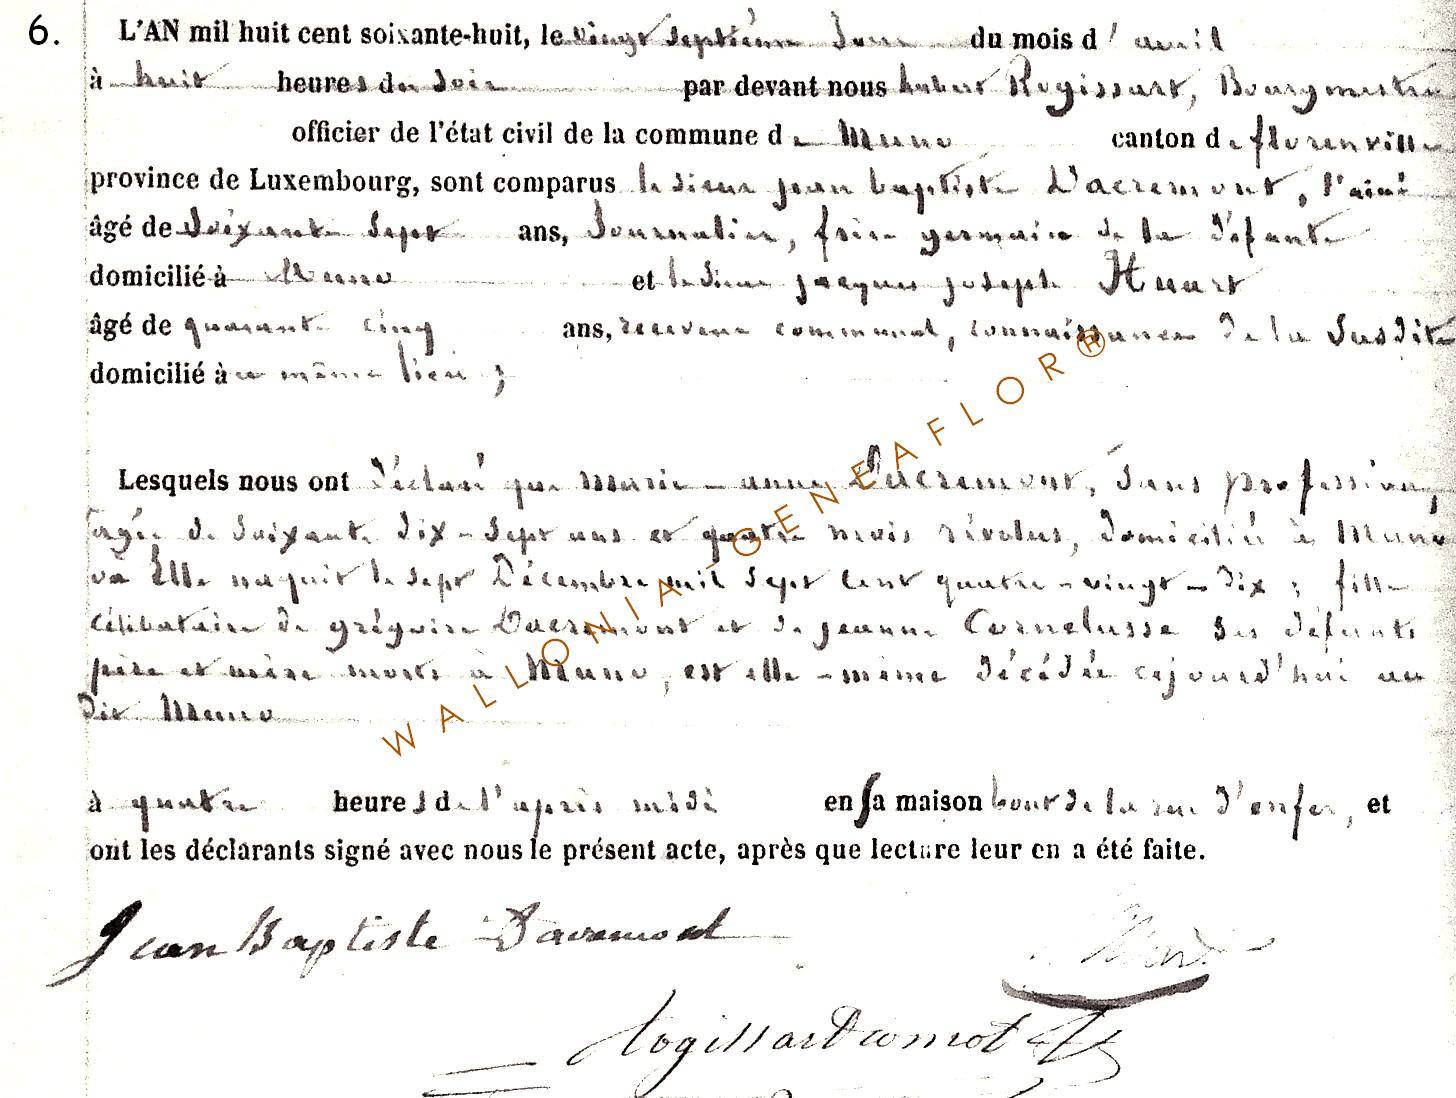 6. L'AN mil huit cent soixante-huit, le vingt septième jour du mois d'avril
à huit heures du soir par devant nous hubert Rogissart, Bourgmestre
officier de l'état civil de la commune de Muno canton de florenville
province de Luxembourg, sont comparus le sieur jean baptiste Dacremont, l'ainé
âgé de soixante sept ans, Journalier, frère germain de la défunte
domicilié à Muno et le sieur jacques joseph Huart
âgé de quarante cinq ans, receveur communal, connaissance de la susdite
domicilié à ce même lieu ;
Lesquels nous ont déclaré que Marie-anne Dacremont, sans profession,
agée de soixante dix-sept ans et quatre mois révolus, domiciliée à Muno
où Elle naquit le sept Décembre mil sept cent quatre-vingt-dix ; fille
célibataire de grégoire Dacremont et de jeanne Cornelusse ses défunts
père et mère morts à Muno, est elle-même décédée cejourd'hui au
dit Muno
à quatre heures de l'après midi en sa maison bout de la rue d'enfer, et
ont les déclarants signé avec nous le présent acte, après que lecture leur en a été faite.
Jean Baptiste Dacremont Huart
Rogissart
WALLONIA-GENEAFLOR®